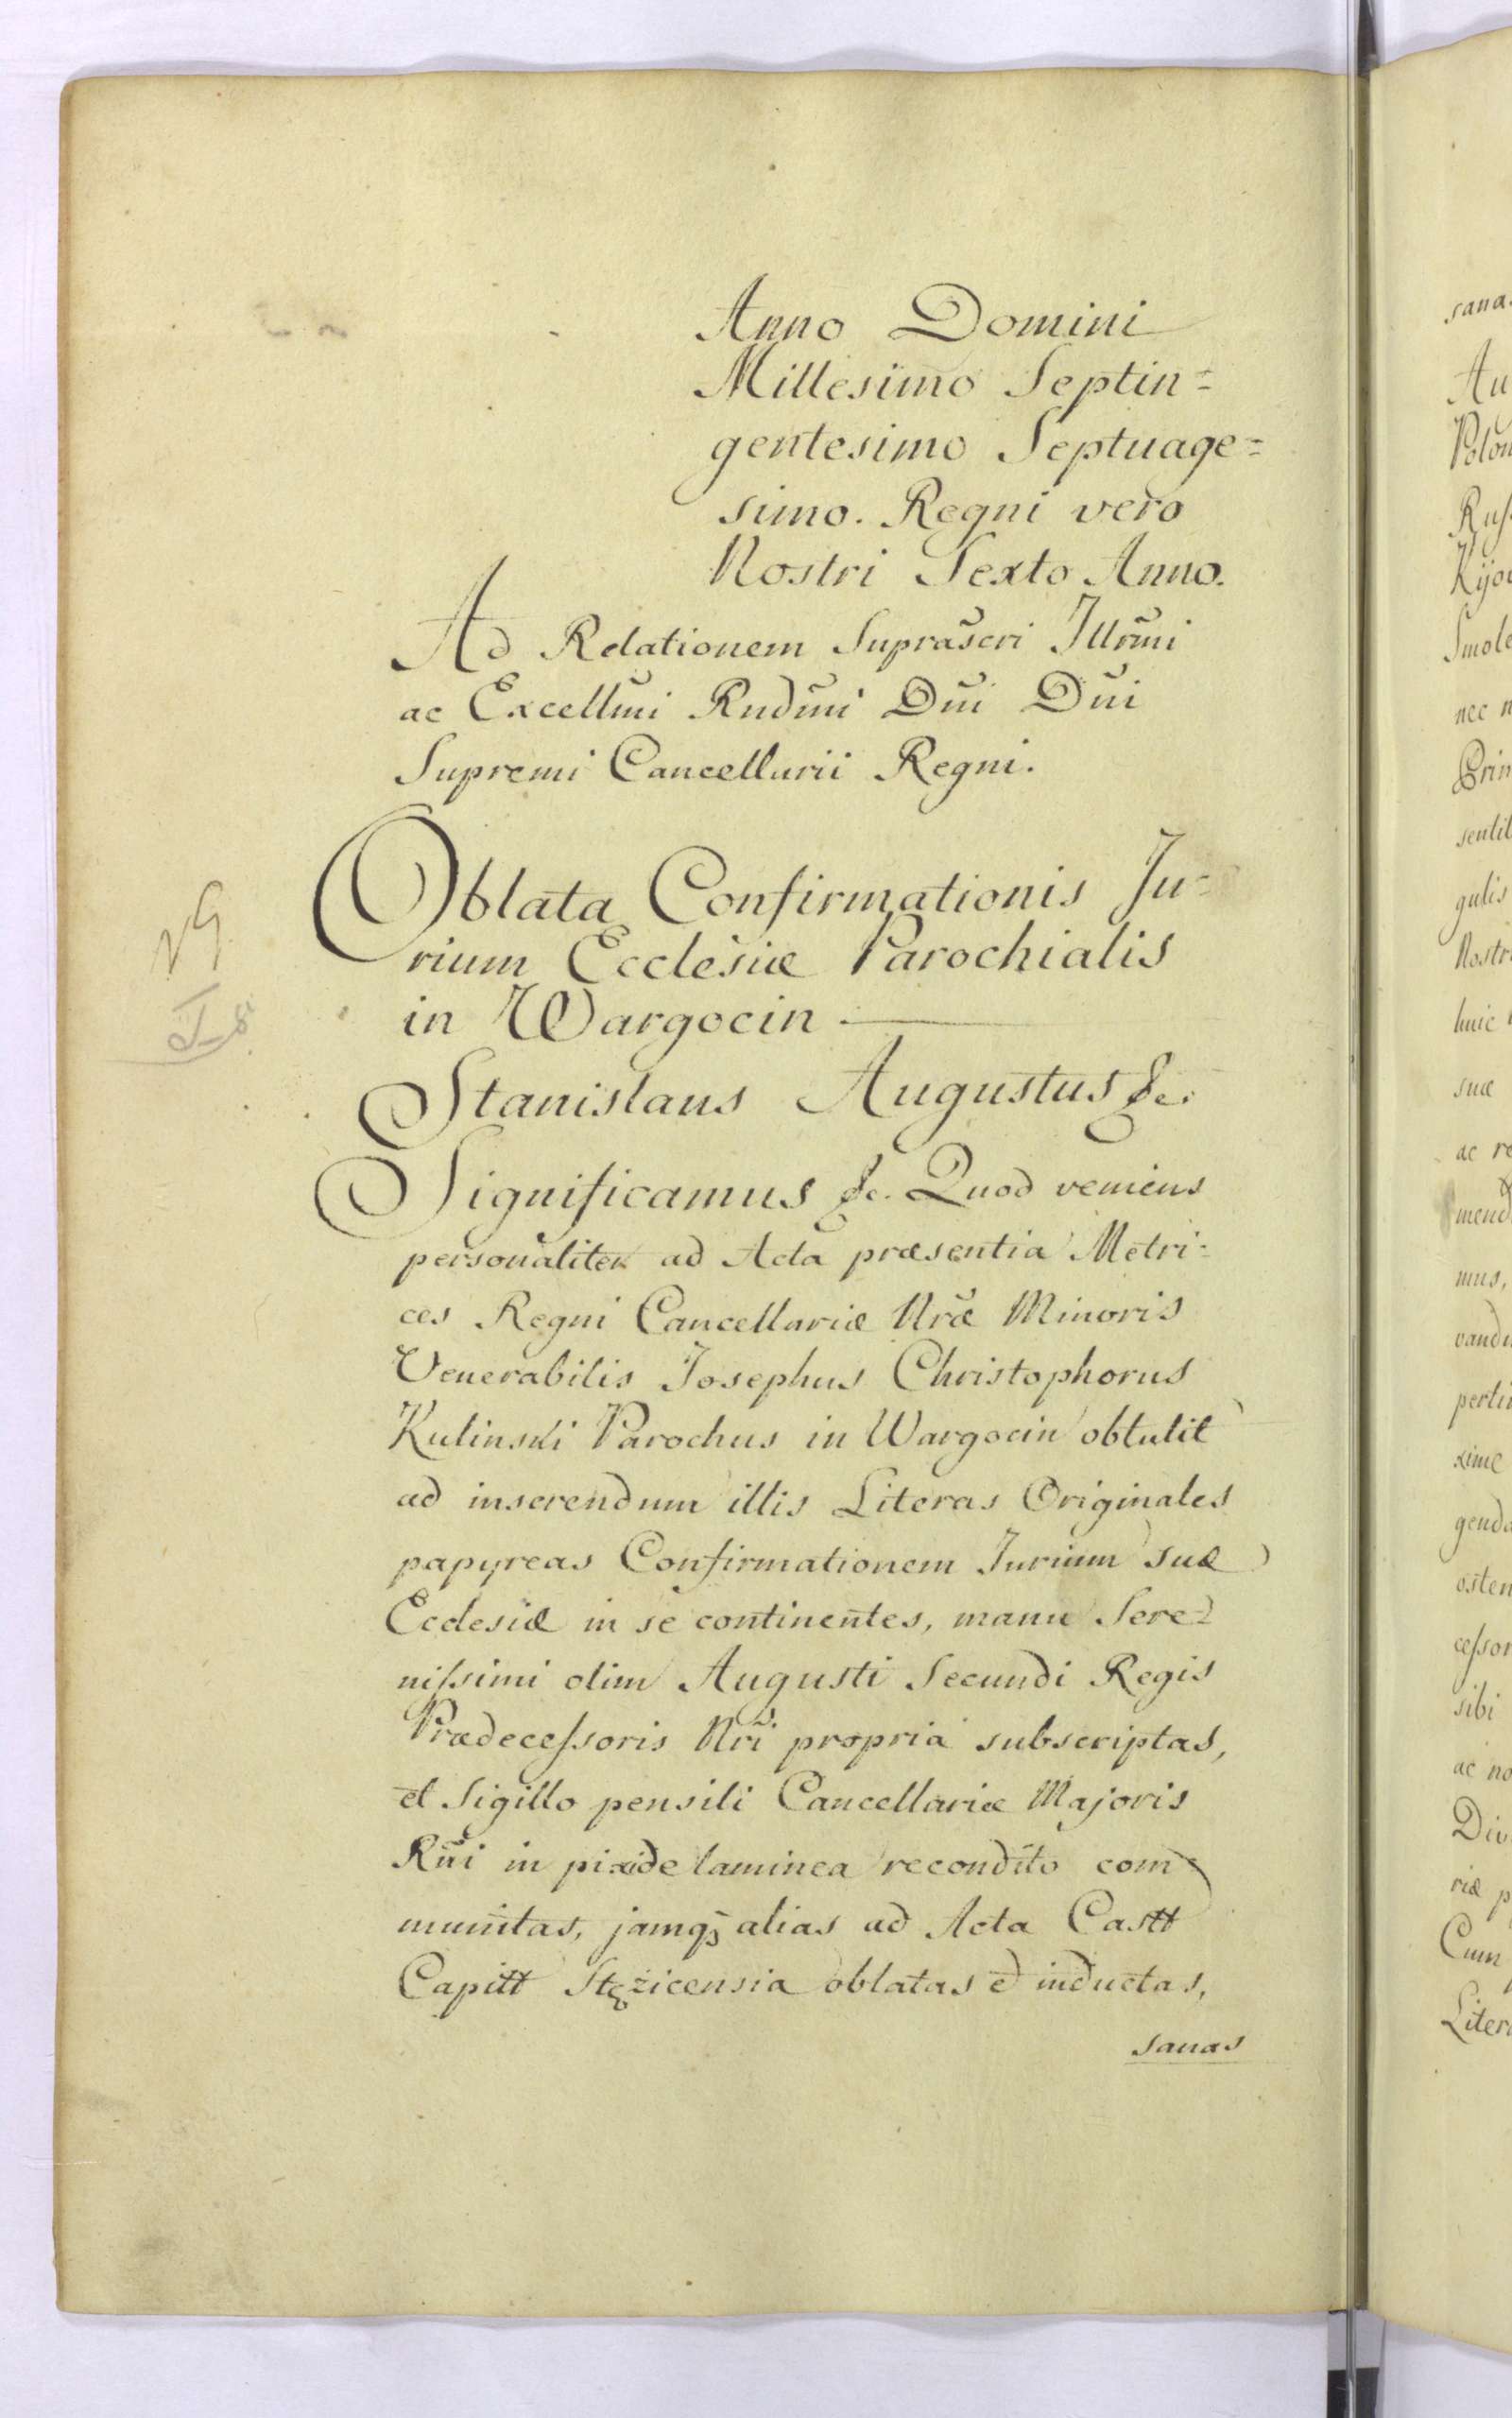 Anno Domini
Millesimo Septin=
gentesimo Septuage=
simo. Regni vero
Nostri Sexto Anno.
Ad Relationem Suprascri Illrmi
ac Excellmi Rndmi Dni Dni
Supremi Cancellarii Regni.
Oblata Confirmationis Ju=
rium Ecclesiæ Parochialis
in Wargocin
Stanislaus Augustus &c.
Significamus &c. Quod veniens
personaliter ad Acta præsentia Metri=
ces Regni Cancellariæ Nræ Minoris
Venerabilis Josephus Christophorus
Kulinski Parochus in Wargocin obtulit
ad inserendum illis Literas Originales
papyreas Confirmationem Jurium suæ
Ecclesiæ in se continentes, manu Sere=
nissimi olim Augusti Secundi Regis
Prædecessoris Nri propria subscriptas,
et Sigillo pensili Cancellariæ Majoris
Rni in pixide laminea recondito com=
munitas, jamq3 alias ad Acta Castt
Capitt Stężicensia oblatas et inductas,
sanas